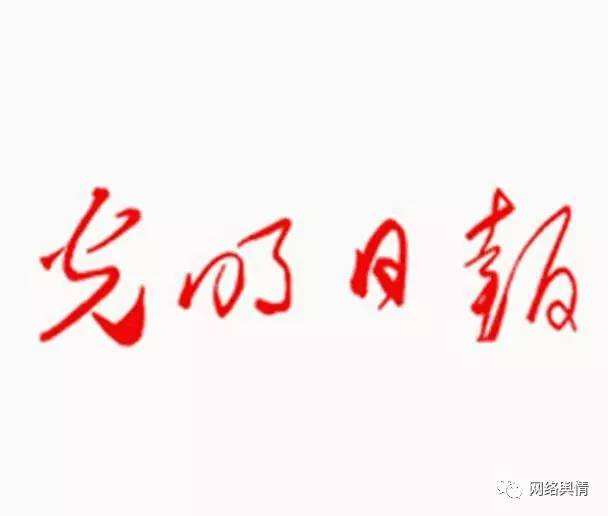 光明日报
网络舆情